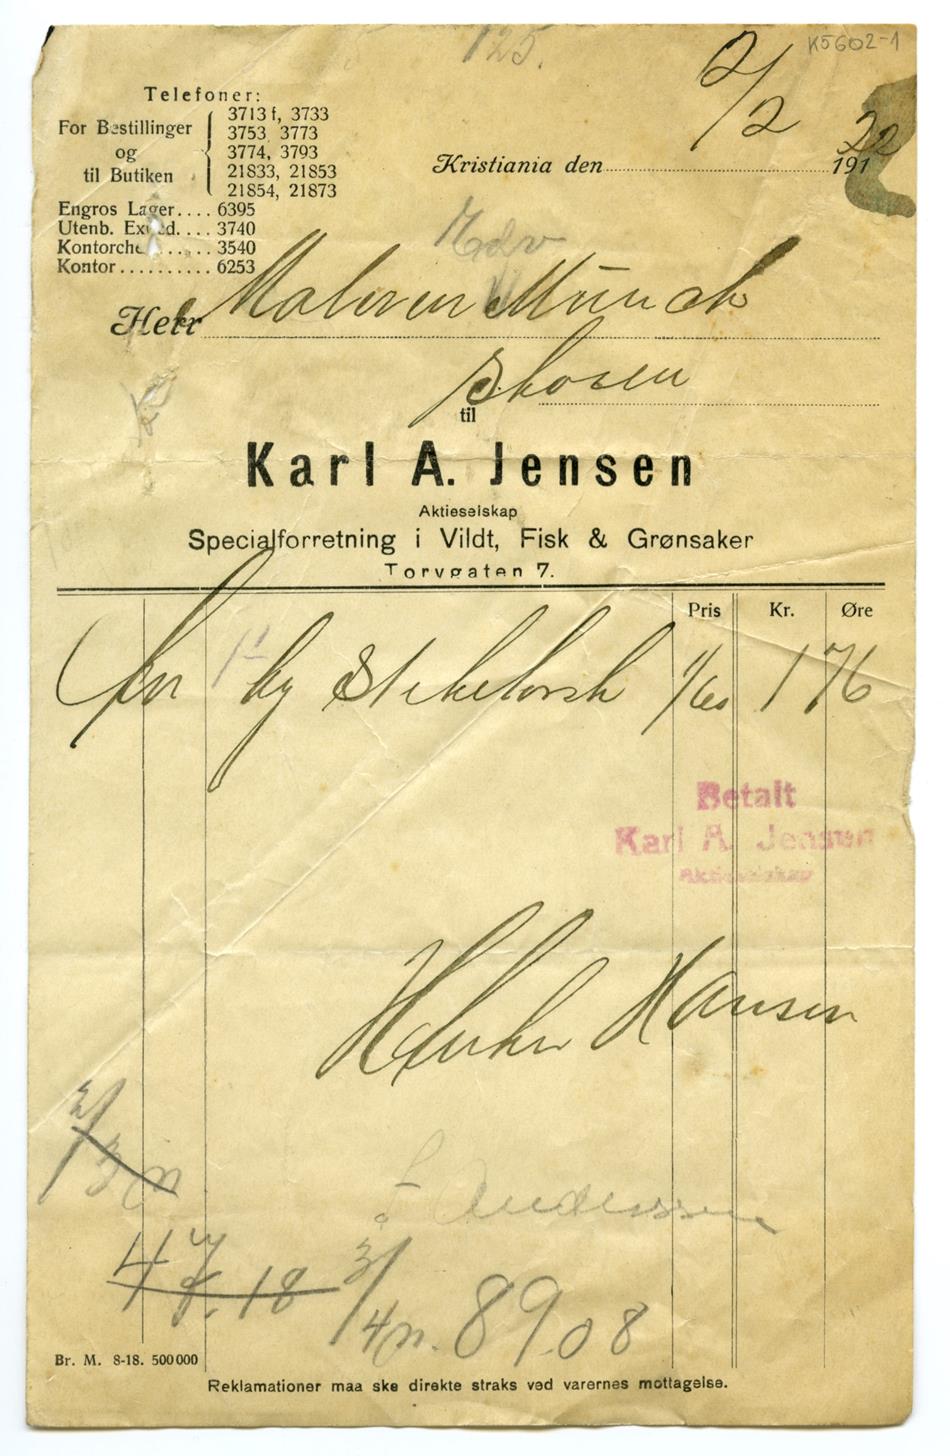 125.
K5602-1
2/2 22
Telefoner:
For Bestillinger og til Butiken
3713 f, 3733
3753, 3773
3774, 3793
21833, 21853
21854, 21873
Kristiania den 191
Engros Lager.... 6395
Utenb. Exped.... 3740
Kontorche 3540
Kontor.......... 6253
Edv
Herr Maleren Munch
Skøien
til
Karl A. Jensen
Aktieselskap
Specialforretning i Vildt, Fisk & Grønsaker
Torvgaten 7.
Pris Kr. Øre
for 1 kg Steketorsk 1/60 1 76
Betalt
Karl A. Jensen
Aktieselskap
Hansen
Anderssen
47.18 3/4 n. 89.08
Br. M. 8-18. 500 000
Reklamationer maa ske direkte straks ved varernes mottagelse.